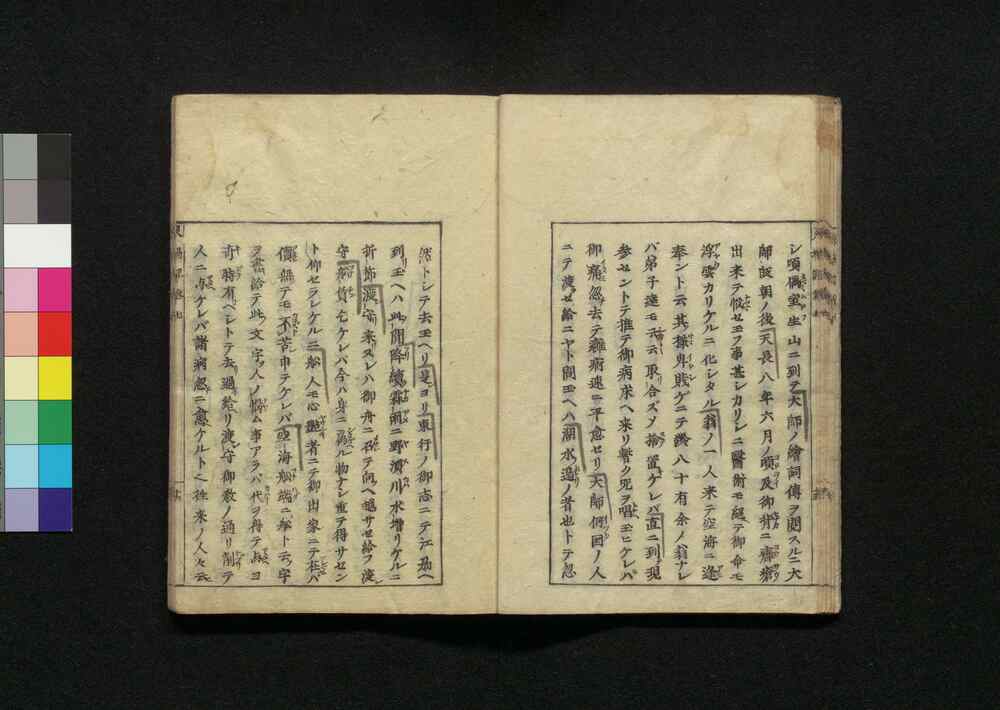 シ頃偶室生山ニ到テ大師ノ繪詞傳ヲ閲スルニ大
師皈朝ノ後天長八年六月ノ頃及御身ニ癰瘡
出来テ悩セ玉フ事甚シカリシニ醫術モ絶テ御命モ
浮雲カリケルニ化シタル翁ノ一人来テ空海ニ逢
奉ント云其様卑賤ゲニテ歳八十有余ノ翁ナレ
バ弟子達モ取合ズノ捨置ケレバ直ニ到現
参セントテ推テ御病床ヘ来リ暫ク呪ヲ唱玉ヒケレバ
御痛忽去テ癰病速ニ平愈セリ大師何国ノ人
ニテ渡セ給ニヤト問玉ヘハ湖水造ノ者也トテ忽
然トシテ去玉ヘリ是ヨリ東行ノ御志ニテ江州ヘ
到玉ヘハ此間降續霖雨ニ野洲川水増リケルニ
折節渡守来スレハ御舟ニ召テ向ヘ越サセ給フ渡
守船賃乞ケレバ今ハ身ニ物ナシ重テ得サセン
ト仰セラレケルニ舩人モ心者ニテ御出家ニテ在バ
價無テモ不苦申テケレバ空海舩端ニ舩ト云字
ヲ書給テ此文字ヲ人ノ悩ム事アラバ代ヲ得テ与ヨ
奇特有ベシトテ去過給リ渡守御教ノ通リ削テ
人ニ与ケレバ諸病忽ニ愈ケルト也往来ノ人々云